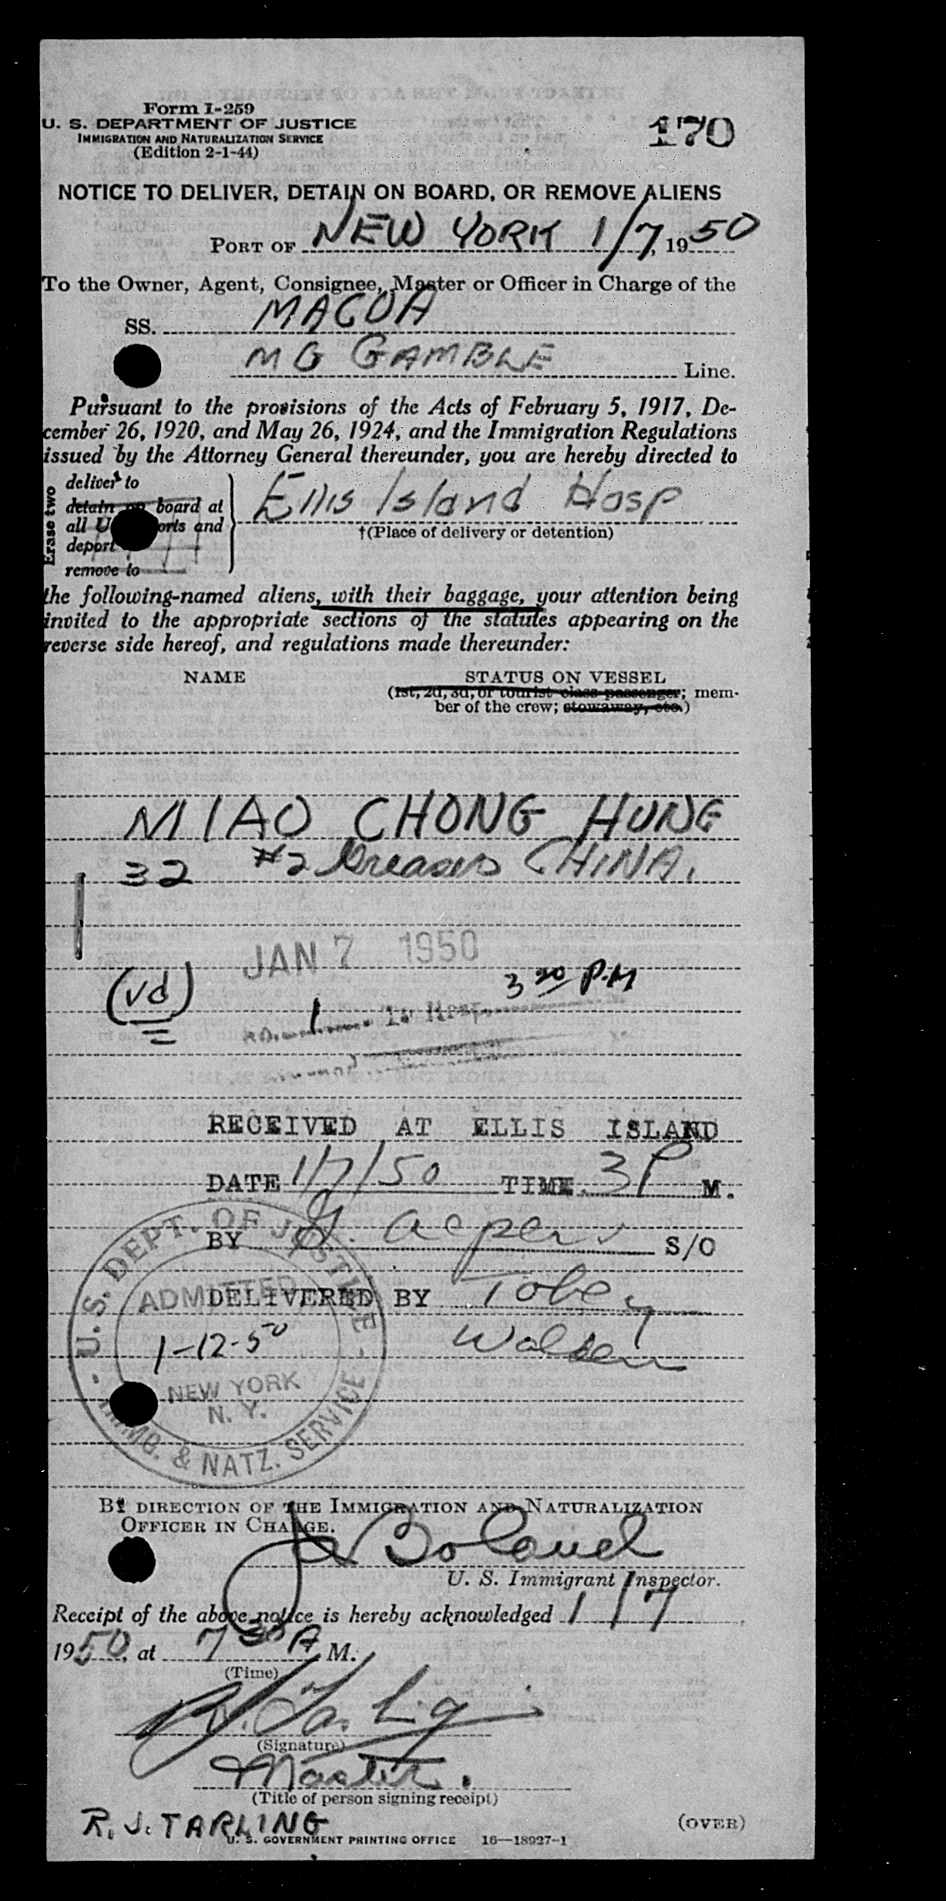 Form I-259
U. S. DEPARTMENT OF JUSTICE
IMMIGRATION AND NATURALIZATION SERVICE
(Edition 2-1-44)
170
NOTICE TO DELIVER, DETAIN ON BOARD, OR REMOVE ALIENS
PORT OF NEW YORK 1/7, 1950
To the Owner, Agent, Consignee, Master or Officer in Charge of the
SS. MACUA
MG GAMBLE Line.
Pursuant to the provisions of the Acts of February 5, 1917, De-
cember 26, 1920, and May 26, 1924, and the Immigration Regulations
issued by the Attorney General thereunder, you are hereby directed to
Erase two
deliver to
detain on board at
all U ports and
deport
remove to
Ellis Island Hosp
†(Place of delivery or detention)
the following-named aliens, with their baggage, your attention being
invited to the appropriate sections of the statutes appearing on the
reverse side hereof, and regulations made thereunder:
NAME STATUS ON VESSEL
(1st, 2d, 3d, or tourist class passenger; mem-
ber of the crew; stowaway, etc.)
MIAO CHONG HUNG
32 #2 Greaser CHINA.
JAN 7 1950
(vd) 3 20 P.M
1 To Hosp
RECEIVED AT ELLIS ISLAND
DATE 1/7/50 TIME 3 P M.
BY S/O
DELIVERED BY Tobey
U. S. DEPT. OF JUSTICE
ADMITTED
1-12-50
NEW YORK
N. Y.
IMMG. & NATZ. SERVICE
BY DIRECTION OF THE IMMIGRATION AND NATURALIZATION
OFFICER IN CHARGE.
Boland
U. S. Immigrant Inspector.
Receipt of the above notice is hereby acknowledged 1/7
1950, at 7 30 A M.
(Time)
R. J. Tarling
(Signature)
Master.
(Title of person signing receipt)
R. J. TARLING
U. S. GOVERNMENT PRINTING OFFICE 16—18927-1
(OVER)